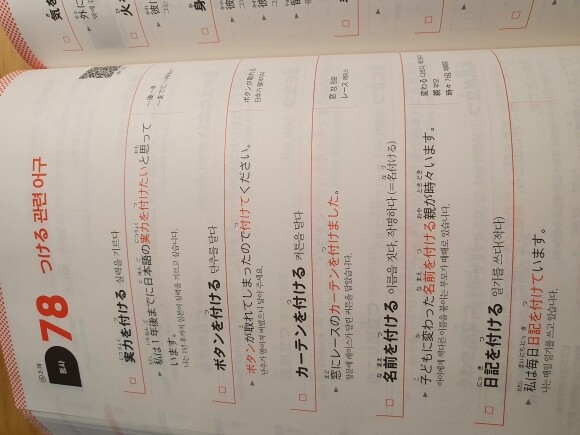 동사
78 つける 관련 어구
実力を付ける 실력을 기르다
私は1年後までに日本語の実力を付けたいと思って
います。
나는 1년 후까지 일본어 실력을 기르고 싶습니다.
ボタンを付ける 단추를 달다
ボタンが取れてしまったので付けてください。
단추가 떨어져 버렸으니 달아 주세요.
ボタンが取れる
단추가 떨어지다
カーテンを付ける 커튼을 달다
窓にレースのカーテンを付けました。
창문에 레이스가 달린 커튼을 달았습니다.
窓 창, 창문
レース 레이스
名前を付ける 이름을 짓다, 작명하다 (=名付ける)
子どもに変わった名前を付ける親が時々います。
아이에게 색다른 이름을 붙이는 부모가 때때로 있습니다.
変わる
親 부모
時々 가끔, 때때로
日記を付ける 일기를 쓰다(적다)
私は毎日日記を付けています。
나는 매일 일기를 쓰고 있습니다.